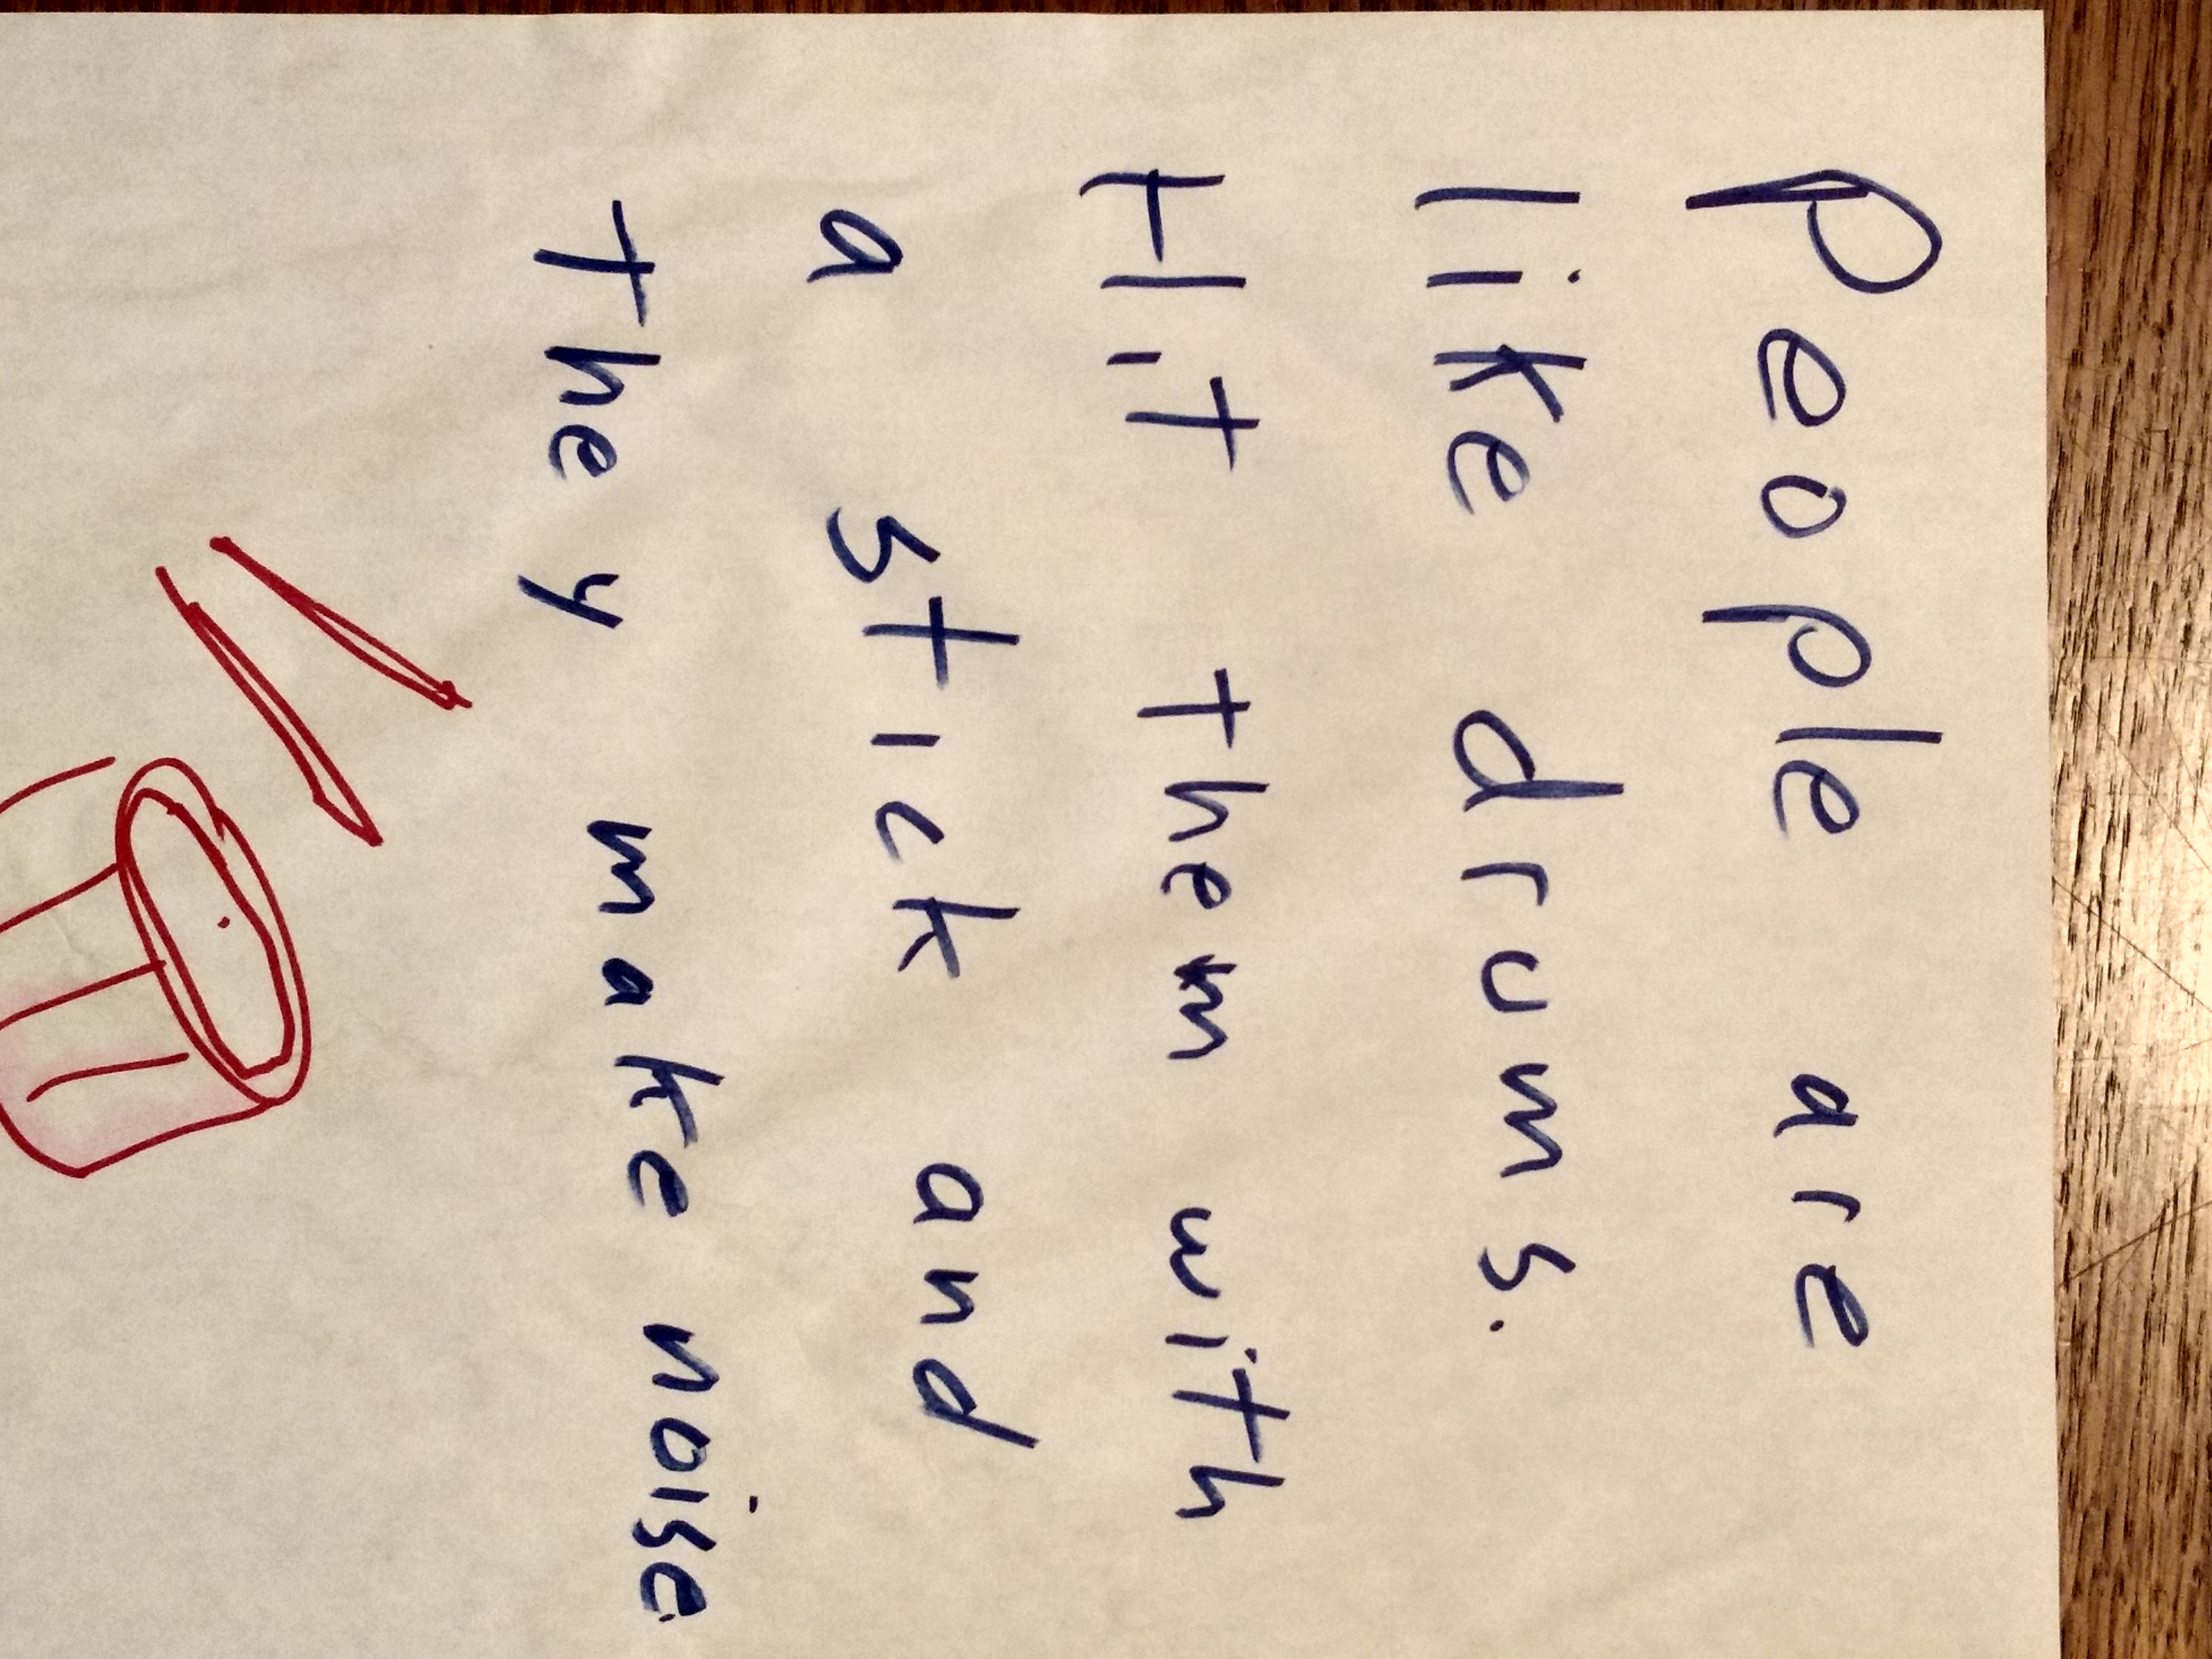 People are
like drums.
Hit them with
a stick and
They make noise.